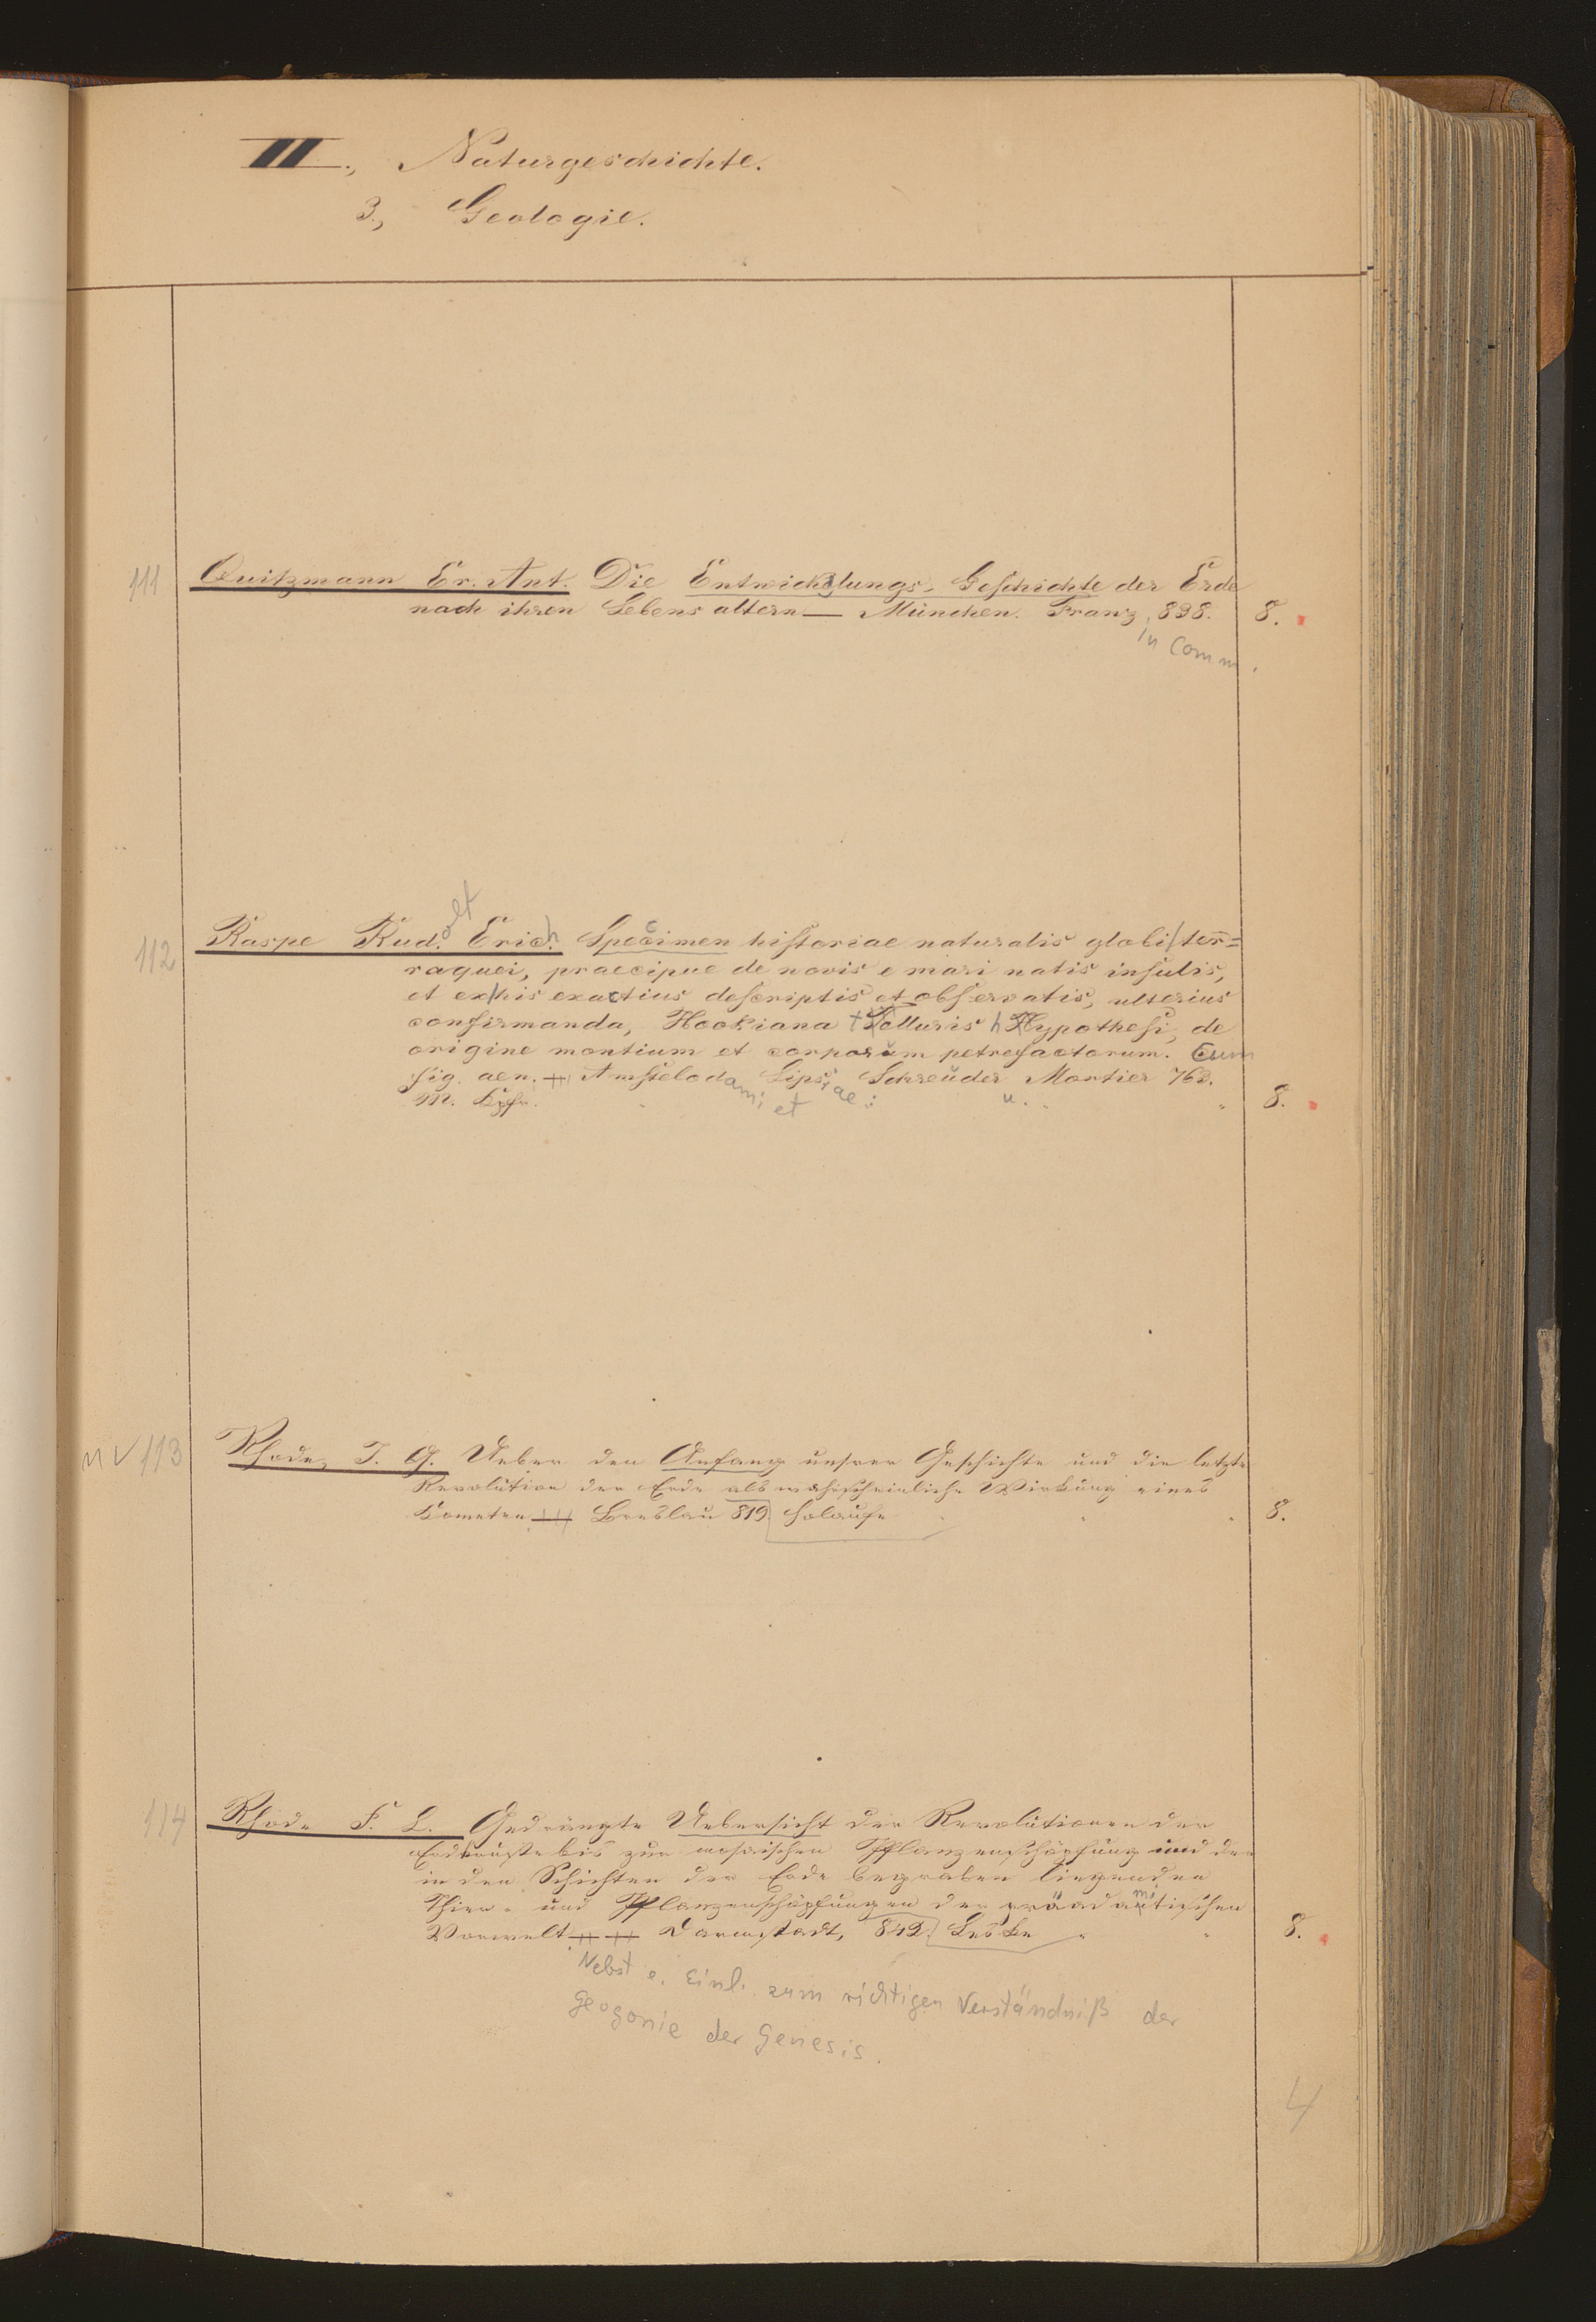 II., Naturgeschichte.
3., Geologie.
111 Quitzmann Er. Ant. Die Entwicklungs-Geschichte der Erde
nach ihren Lebens altern — München. Franz 838. 8.
in Comm.
olf
112 Raspe Rud. Erich. Specimen historiae naturalis globi ter=
raquei, praecipue de novis e mari natis insulis,
et ex his exactius descriptis et observatis, ulterius
confirmanda, Hookiana Telluris Hypothesi, de
origine montium et corporum petrefactorum. Cum
fig. aen. — Amstelodami et Lipsiae: Schreuder u. Mortier 763.
M. Kpfn. 8.
113 Rhode, J. G. Ueber den Anfang unsrer Geschichte und die letzte
Revolution der Erde als wahrscheinliche Wirkung eines
Kometen — Breslau 819 Holäufer 8.
114 Rhode F. L. Gedrängte Uebersicht der Revolutionen der
Erdkruste bis zur mosaischen Pflanzenschöpfung und der
in den Schichten der Erde begraben liegenden
Thier- und Pflanzenschöpfungen der präadamitischen
Vorwelt — Darmstadt, 842. Leske 8.
Nebst e. Einl. zum richtigen Verständniß der
Geogonie der Genesis.
4